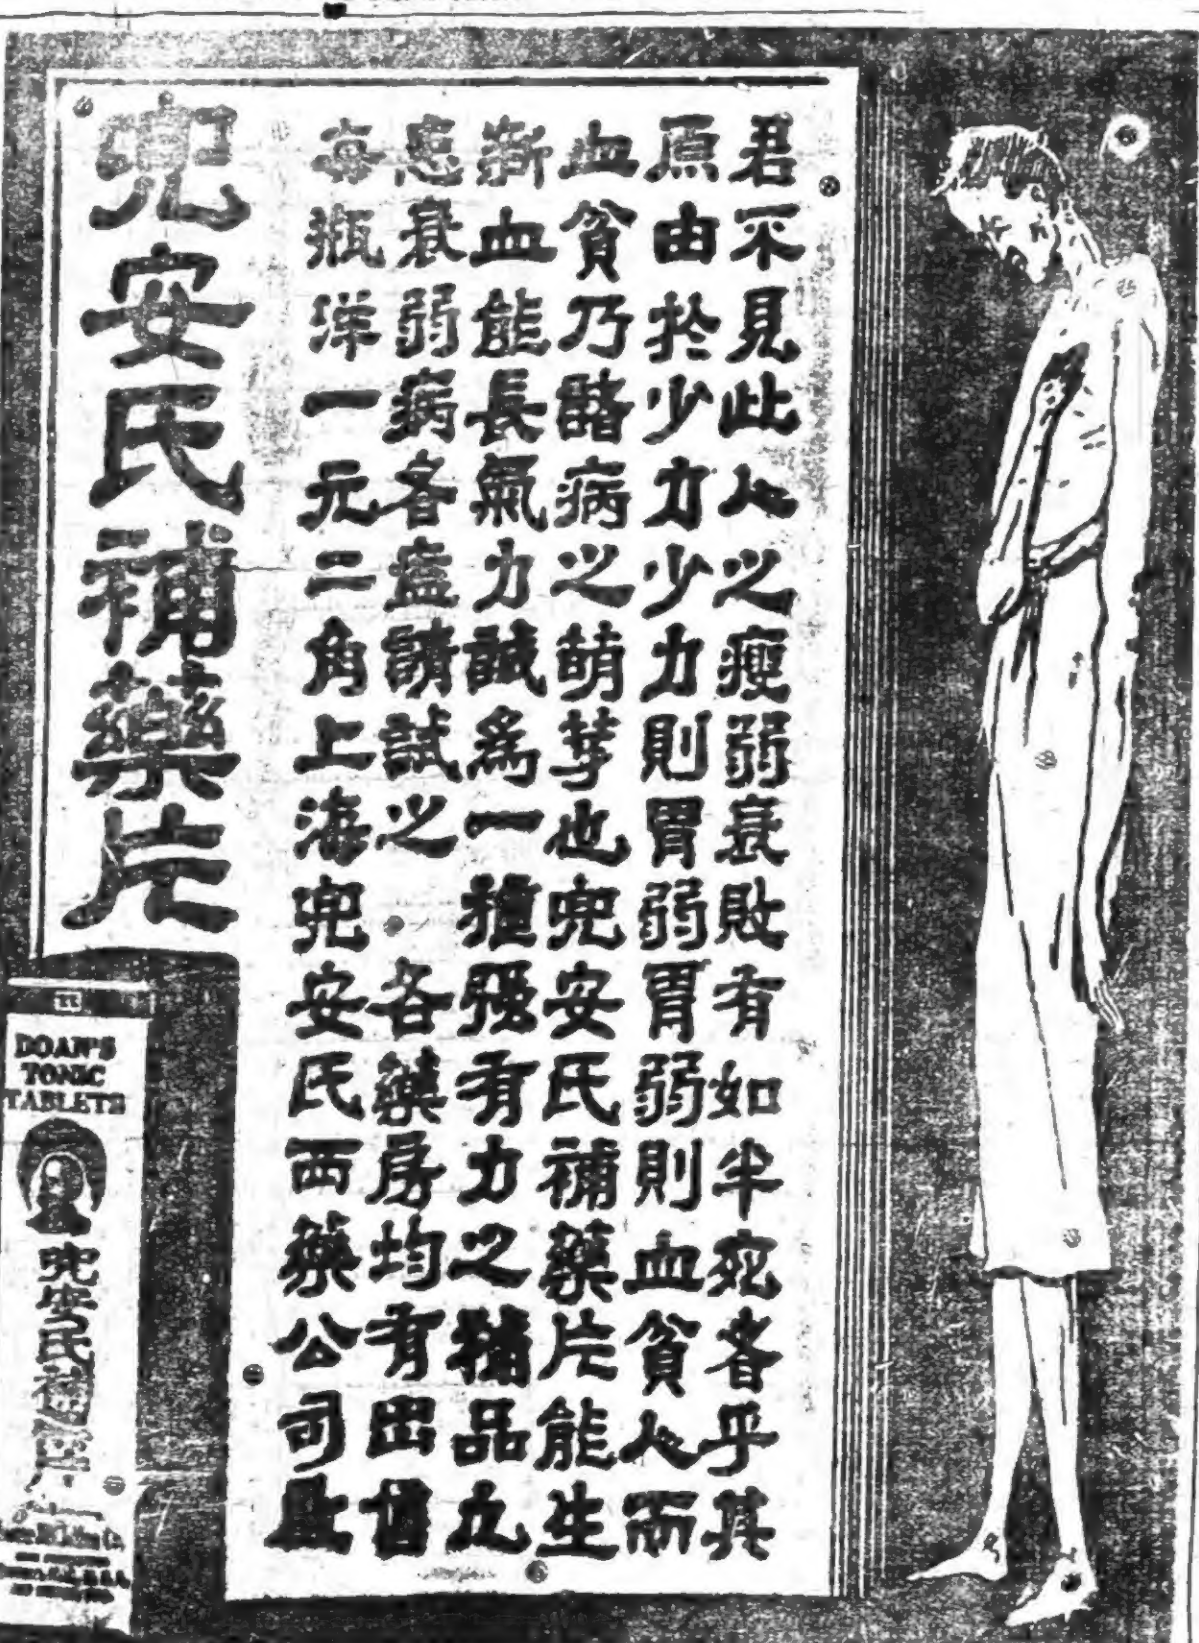 君不見此人之瘦弱衰敗有如半死者乎其
原由於少力少力則胃弱胃弱則血貧人而
血貧乃諸病之萌芽也兜安氏補藥片能生
新血能長氣力誠為一種强有力之補品凡
患衰弱病者盍請試之 各藥房均有出售
每瓶洋一元二角上海兜安氏西藥公司啟
兜安氏補藥片
DOAN'S
TONIC
TABLETS
兜安氏補藥片